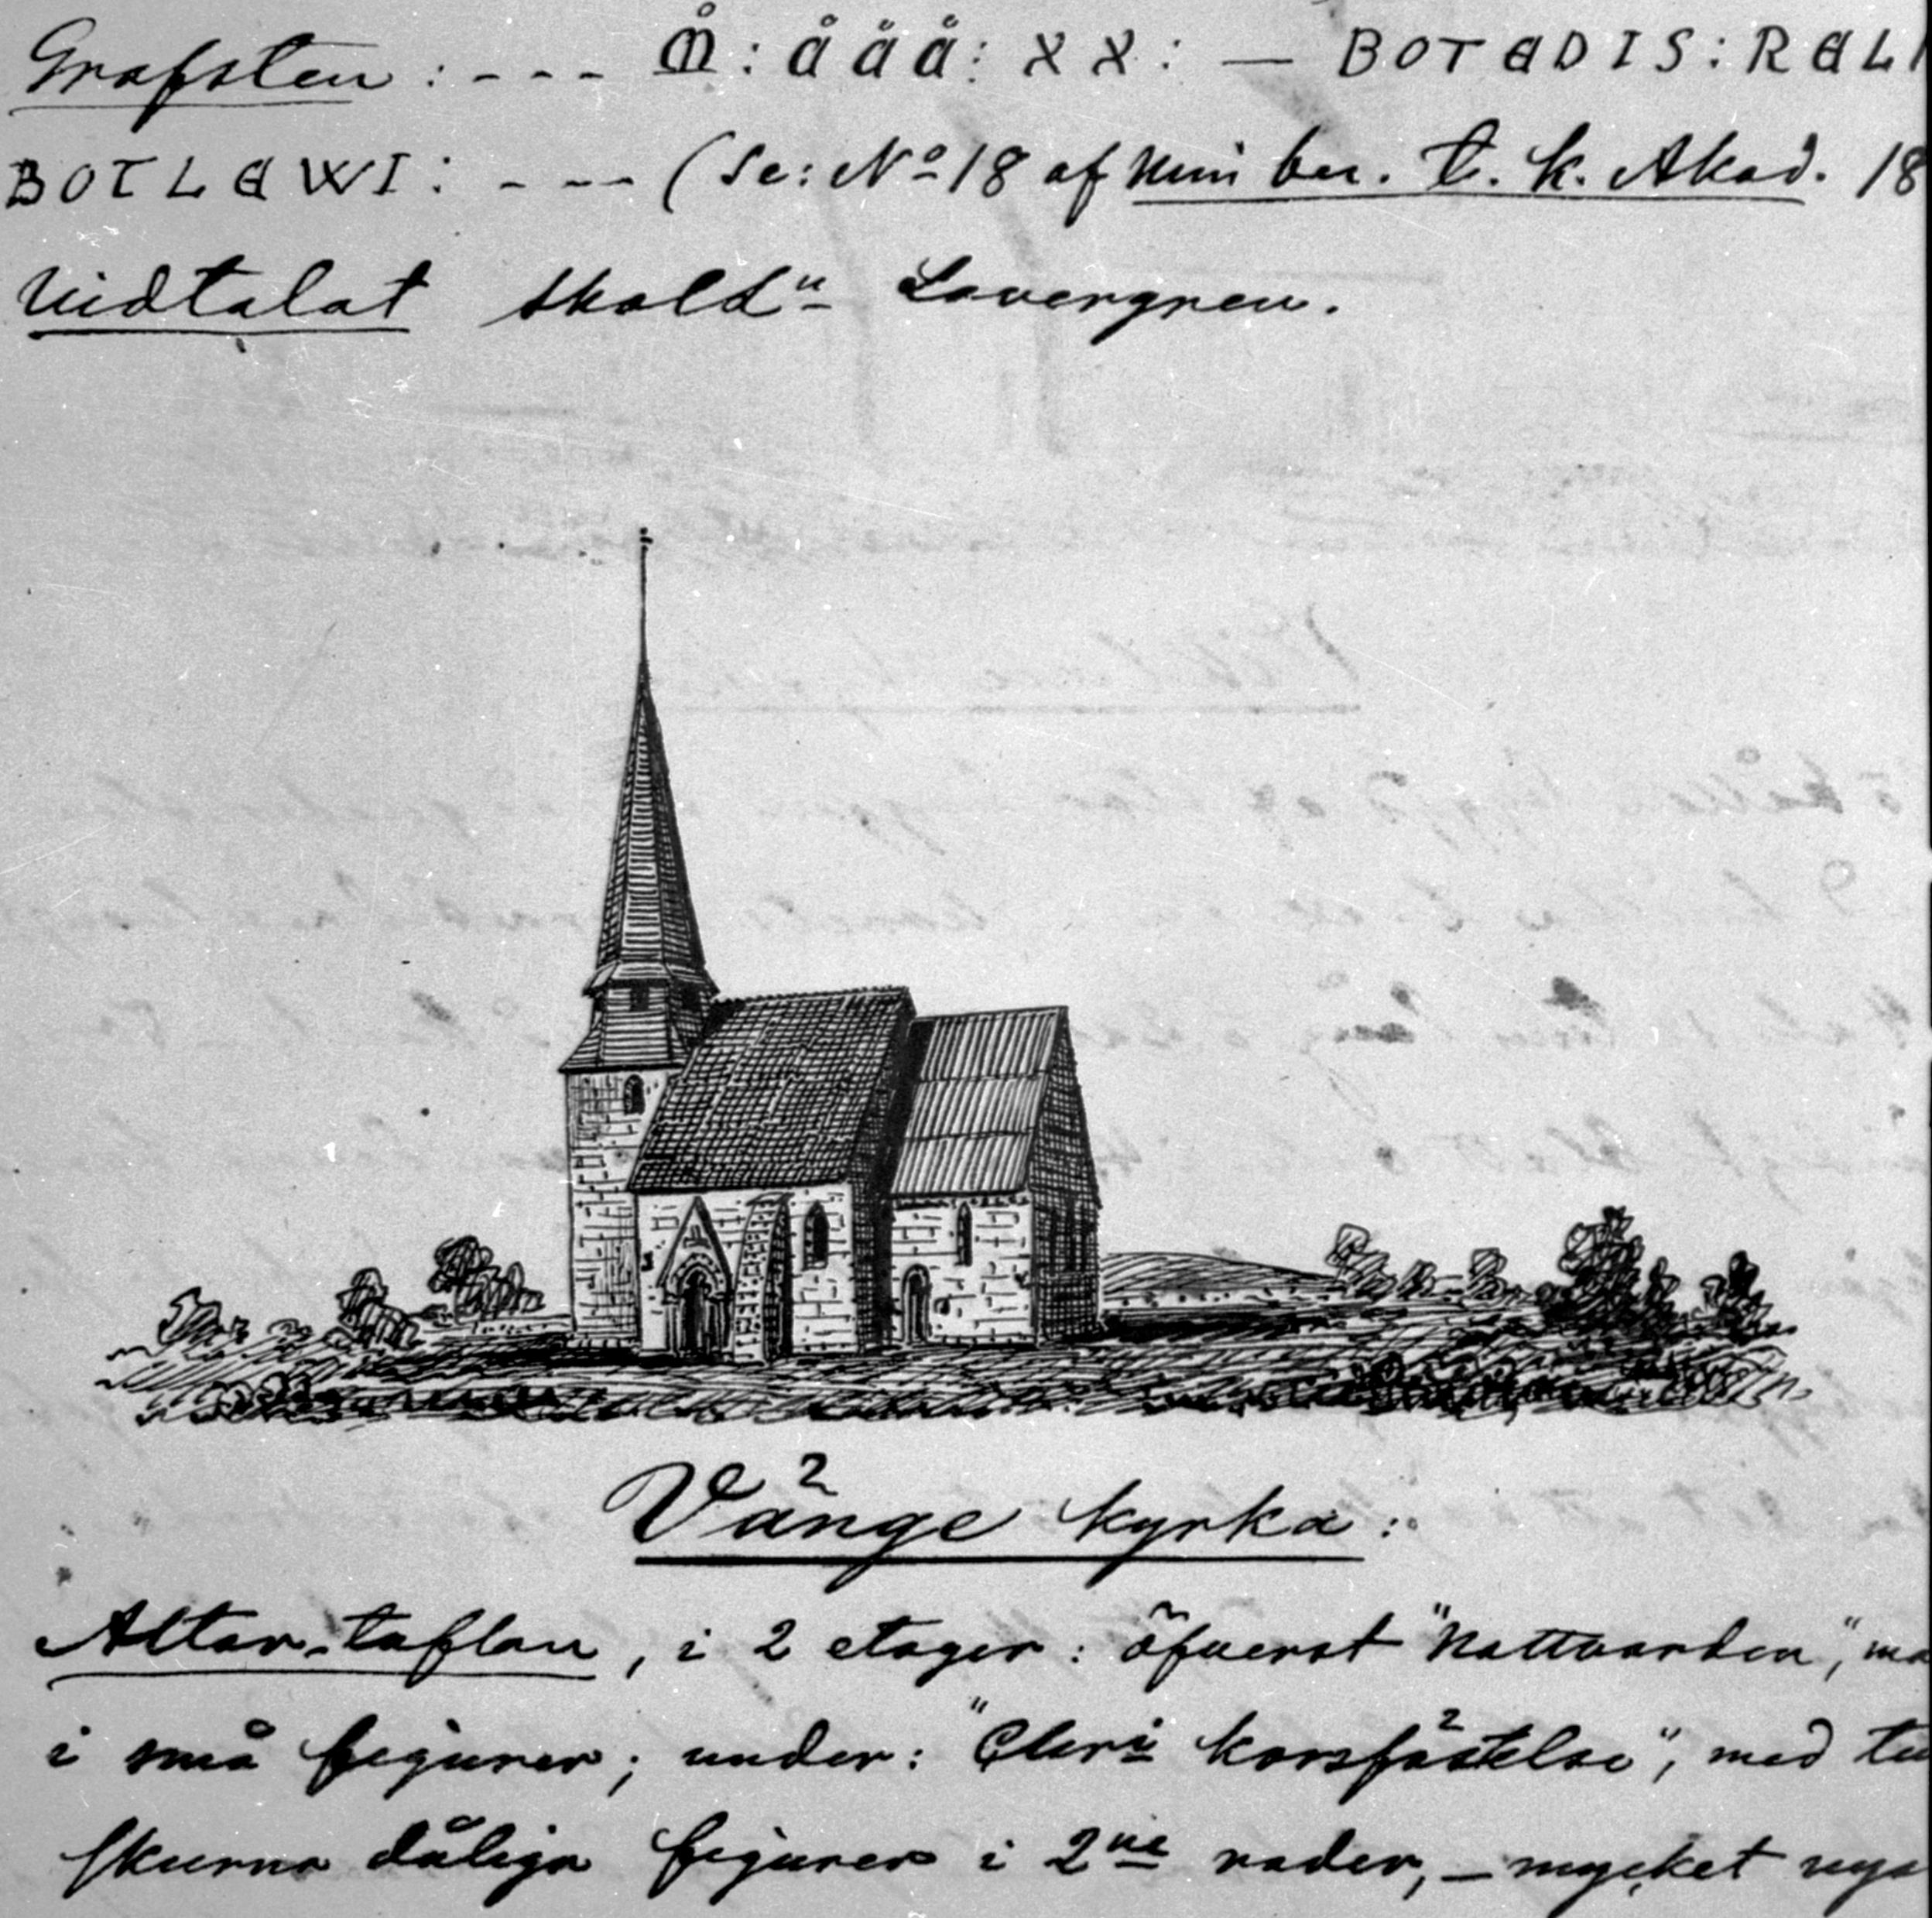 Grafsten : - - - M̊ : å å å : x x : — BOTADIS : RAL
BOTLAWI : - - - (Se: Nº 18 af min ber. t. k. Akad. 18
Vidtalat skolln Lavergren.
Vänge kyrka :
Altar-taflan, i 2 etager : öfverst "Nattvarden",
i små figurer ; under : "Chri korsfästelse", med
skurna dåliga figurer i 2ne rader, — mycket